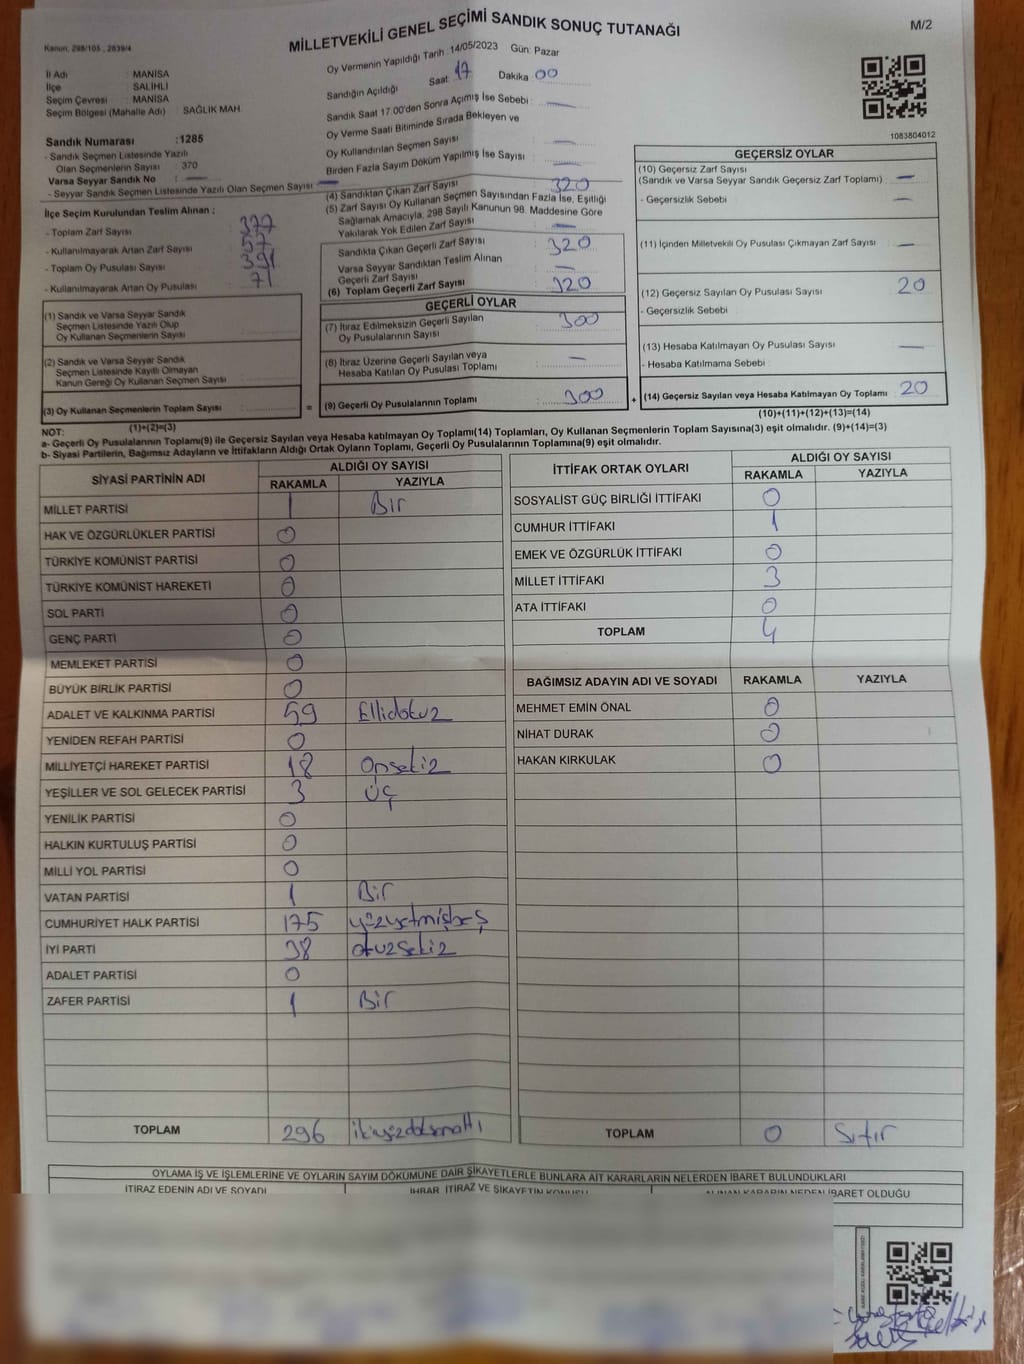 MİLLETVEKİLİ GENEL SEÇİMİ SANDIK SONUÇ TUTANAĞI
M/2
Kanun: 298/105 , 2839/4
İl Adı : MANİSA
İlçe : SALİHLİ
Seçim Çevresi : MANİSA
Seçim Bölgesi (Mahalle Adı) : SAĞLIK MAH.
Sandık Numarası :1285
- Sandık Seçmen Listesinde Yazılı
Olan Seçmenlerin Sayısı : 370
Varsa Seyyar Sandık No : —
- Seyyar Sandık Seçmen Listesinde Yazılı Olan Seçmen Sayısı : —
İlçe Seçim Kurulundan Teslim Alınan ;
- Toplam Zarf Sayısı : 377
- Kullanılmayarak Artan Zarf Sayısı : 57
- Toplam Oy Pusulası Sayısı : 391
- Kullanılmayarak Artan Oy Pusulası : 71
(1) Sandık ve Varsa Seyyar Sandık
Seçmen Listesinde Yazılı Olup
Oy Kullanan Seçmenlerin Sayısı :
(2) Sandık ve Varsa Seyyar Sandık
Seçmen Listesinde Kayıtlı Olmayan
Kanun Gereği Oy Kullanan Seçmen Sayısı :
(3) Oy Kullanan Seçmenlerin Toplam Sayısı :
(1)+(2)=(3)
Oy Vermenin Yapıldığı Tarih 14/05/2023 Gün: Pazar
Sandığın Açıldığı Saat 17 Dakika 00
Sandık Saat 17.00'den Sonra Açılmış İse Sebebi : —
Oy Verme Saati Bitiminde Sırada Bekleyen ve
Oy Kullandırılan Seçmen Sayısı : —
Birden Fazla Sayım Döküm Yapılmış İse Sayısı : —
(4) Sandıktan Çıkan Zarf Sayısı 320
(5) Zarf Sayısı Oy Kullanan Seçmen Sayısından Fazla İse, Eşitliği
Sağlamak Amacıyla, 298 Sayılı Kanunun 98. Maddesine Göre
Yakılarak Yok Edilen Zarf Sayısı : —
Sandıkta Çıkan Geçerli Zarf Sayısı : 320
Varsa Seyyar Sandıktan Teslim Alınan
Geçerli Zarf Sayısı : —
(6) Toplam Geçerli Zarf Sayısı : 320
GEÇERLİ OYLAR
(7) İtiraz Edilmeksizin Geçerli Sayılan
Oy Pusulalarının Sayısı : 300
(8) İtiraz Üzerine Geçerli Sayılan veya
Hesaba Katılan Oy Pusulası Toplamı : —
= (9) Geçerli Oy Pusulalarının Toplamı : 300
1083804012
GEÇERSİZ OYLAR
(10) Geçersiz Zarf Sayısı
(Sandık ve Varsa Seyyar Sandık Geçersiz Zarf Toplamı) : —
- Geçersizlik Sebebi : —
(11) İçinden Milletvekili Oy Pusulası Çıkmayan Zarf Sayısı : —
(12) Geçersiz Sayılan Oy Pusulası Sayısı : 20
- Geçersizlik Sebebi :
(13) Hesaba Katılmayan Oy Pusulası Sayısı : —
- Hesaba Katılmama Sebebi :
+ (14) Geçersiz Sayılan veya Hesaba Katılmayan Oy Toplamı : 20
(10)+(11)+(12)+(13)=(14)
NOT:
a- Geçerli Oy Pusulalarının Toplamı(9) ile Geçersiz Sayılan veya Hesaba katılmayan Oy Toplamı(14) Toplamları, Oy Kullanan Seçmenlerin Toplam Sayısına(3) eşit olmalıdır. (9)+(14)=(3)
b- Siyasi Partilerin, Bağımsız Adayların ve İttifakların Aldığı Ortak Oyların Toplamı, Geçerli Oy Pusulalarının Toplamına(9) eşit olmalıdır.
SİYASİ PARTİNİN ADI ALDIĞI OY SAYISI
RAKAMLA YAZIYLA
MİLLET PARTİSİ 1 Bir
HAK VE ÖZGÜRLÜKLER PARTİSİ 0
TÜRKİYE KOMÜNİST PARTİSİ 0
TÜRKİYE KOMÜNİST HAREKETİ 0
SOL PARTİ 0
GENÇ PARTİ 0
MEMLEKET PARTİSİ 0
BÜYÜK BİRLİK PARTİSİ 0
ADALET VE KALKINMA PARTİSİ 59 Ellidokuz
YENİDEN REFAH PARTİSİ 0
MİLLİYETÇİ HAREKET PARTİSİ 18 Onsekiz
YEŞİLLER VE SOL GELECEK PARTİSİ 3 Üç
YENİLİK PARTİSİ 0
HALKIN KURTULUŞ PARTİSİ 0
MİLLİ YOL PARTİSİ 0
VATAN PARTİSİ 1 Bir
CUMHURİYET HALK PARTİSİ 175 yüzyetmişbeş
İYİ PARTİ 38 otuzsekiz
ADALET PARTİSİ 0
ZAFER PARTİSİ 1 Bir
TOPLAM 296 ikiyüzdoksanaltı
İTTİFAK ORTAK OYLARI ALDIĞI OY SAYISI
RAKAMLA YAZIYLA
SOSYALİST GÜÇ BİRLİĞİ İTTİFAKI 0
CUMHUR İTTİFAKI 1
EMEK VE ÖZGÜRLÜK İTTİFAKI 0
MİLLET İTTİFAKI 3
ATA İTTİFAKI 0
TOPLAM 4
BAĞIMSIZ ADAYIN ADI VE SOYADI RAKAMLA YAZIYLA
MEHMET EMİN ÖNAL 0
NİHAT DURAK 0
HAKAN KIRKULAK 0
TOPLAM 0 Sıfır
OYLAMA İŞ VE İŞLEMLERİNE VE OYLARIN SAYIM DÖKÜMÜNE DAİR ŞİKAYETLERLE BUNLARA AİT KARARLARIN NELERDEN İBARET BULUNDUKLARI
İTİRAZ EDENİN ADI VE SOYADI İHBAR, İTİRAZ VE ŞİKAYETİN KONUSU ALINAN KARARIN NEDEN İBARET OLDUĞU